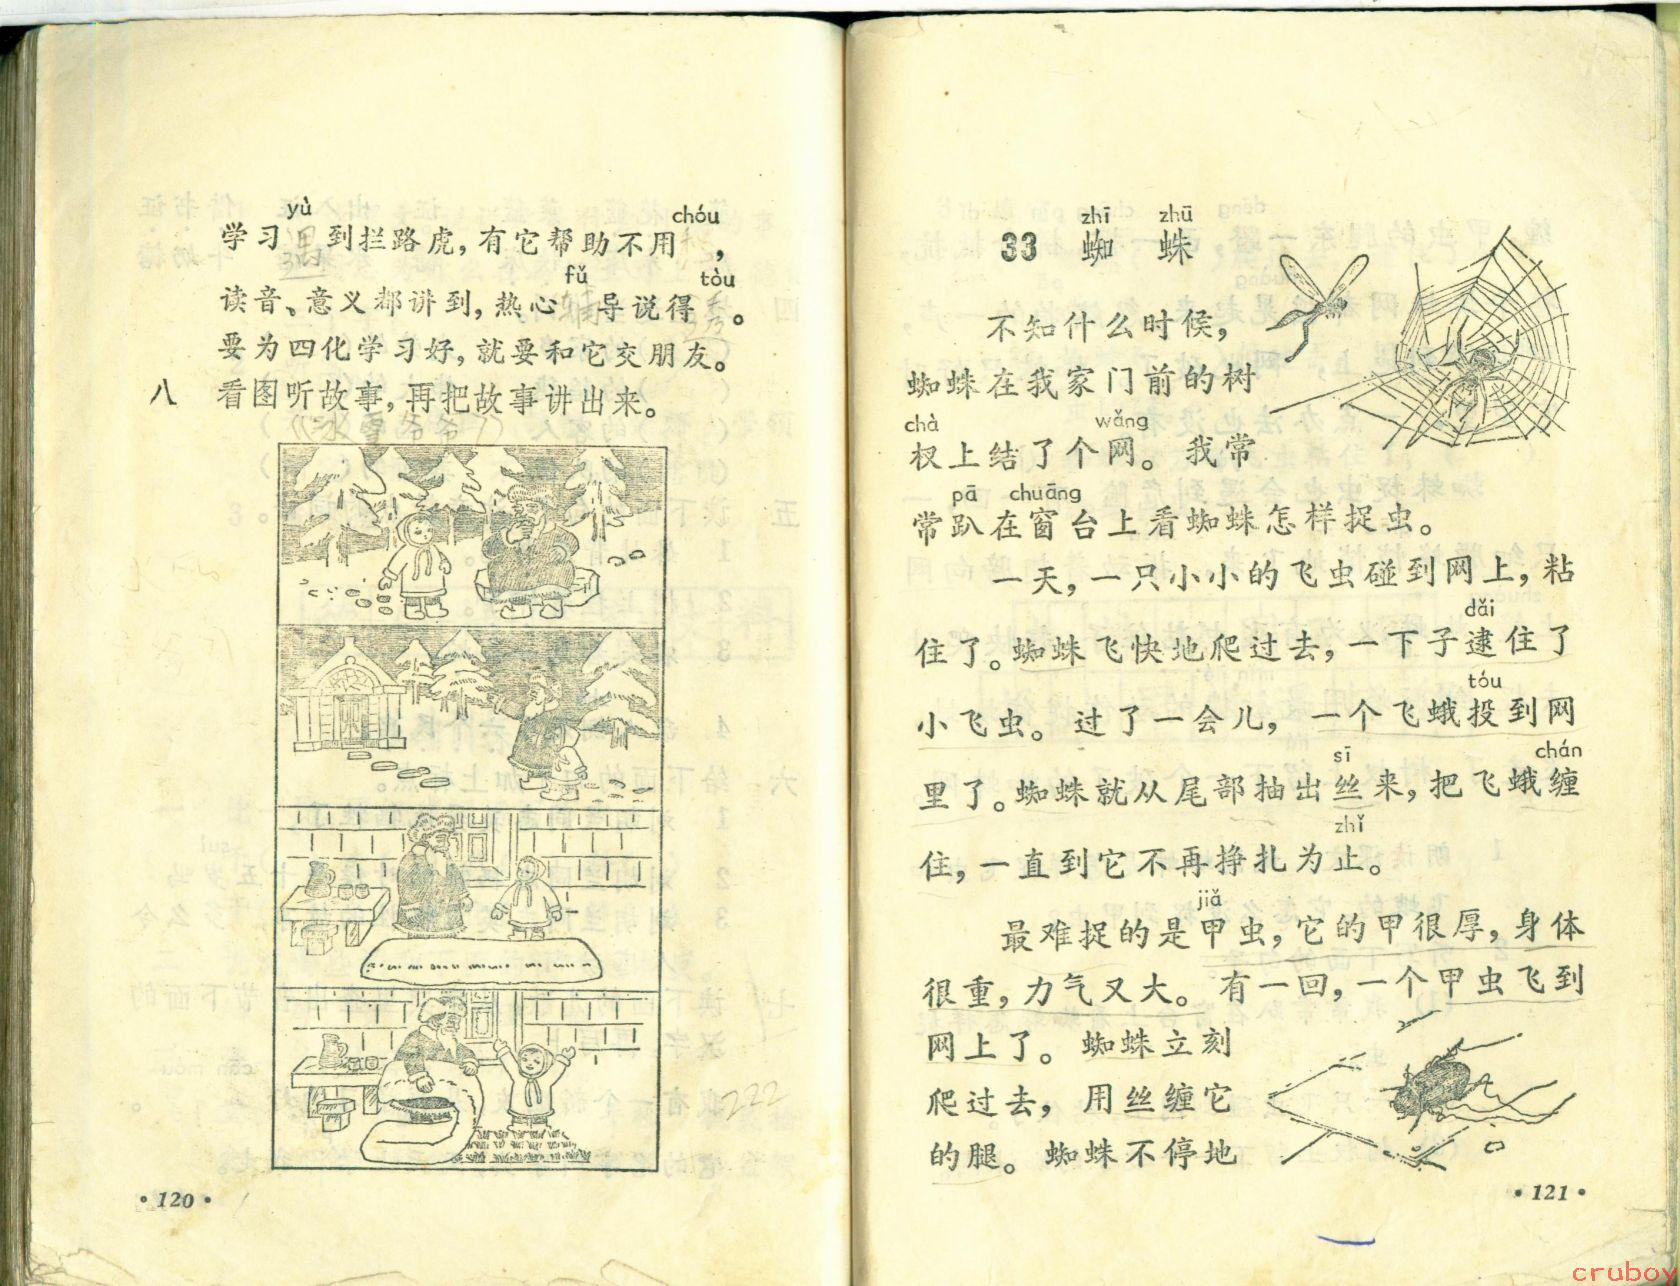 yù
chóu
学习 到拦路虎，有它帮助不用 ，
fǔ
tòu
读音、意义都讲到，热心 导说得 。
要为四化学习好，就要和它交朋友。
八 看图听故事，再把故事讲出来。
（冰雪爷爷）
222
·120·
zhī zhū
33 蜘 蛛
不知什么时候，
蜘蛛在我家门前的树
chà
wǎng
杈上结了个网。我常
pā chuāng
常趴在窗台上看蜘蛛怎样捉虫。
一天，一只小小的飞虫碰到网上，粘
dǎi
住了。蜘蛛飞快地爬过去，一下子逮住了
tóu
小飞虫。过了一会儿，一个飞蛾投到网
sī
chán
里了。蜘蛛就从尾部抽出丝来，把飞蛾缠
zhǐ
住，一直到它不再挣扎为止。
jiǎ
最难捉的是甲虫，它的甲很厚，身体
很重，力气又大。有一回，一个甲虫飞到
网上了。蜘蛛立刻
爬过去，用丝缠它
的腿。蜘蛛不停地
·121·
cruboy